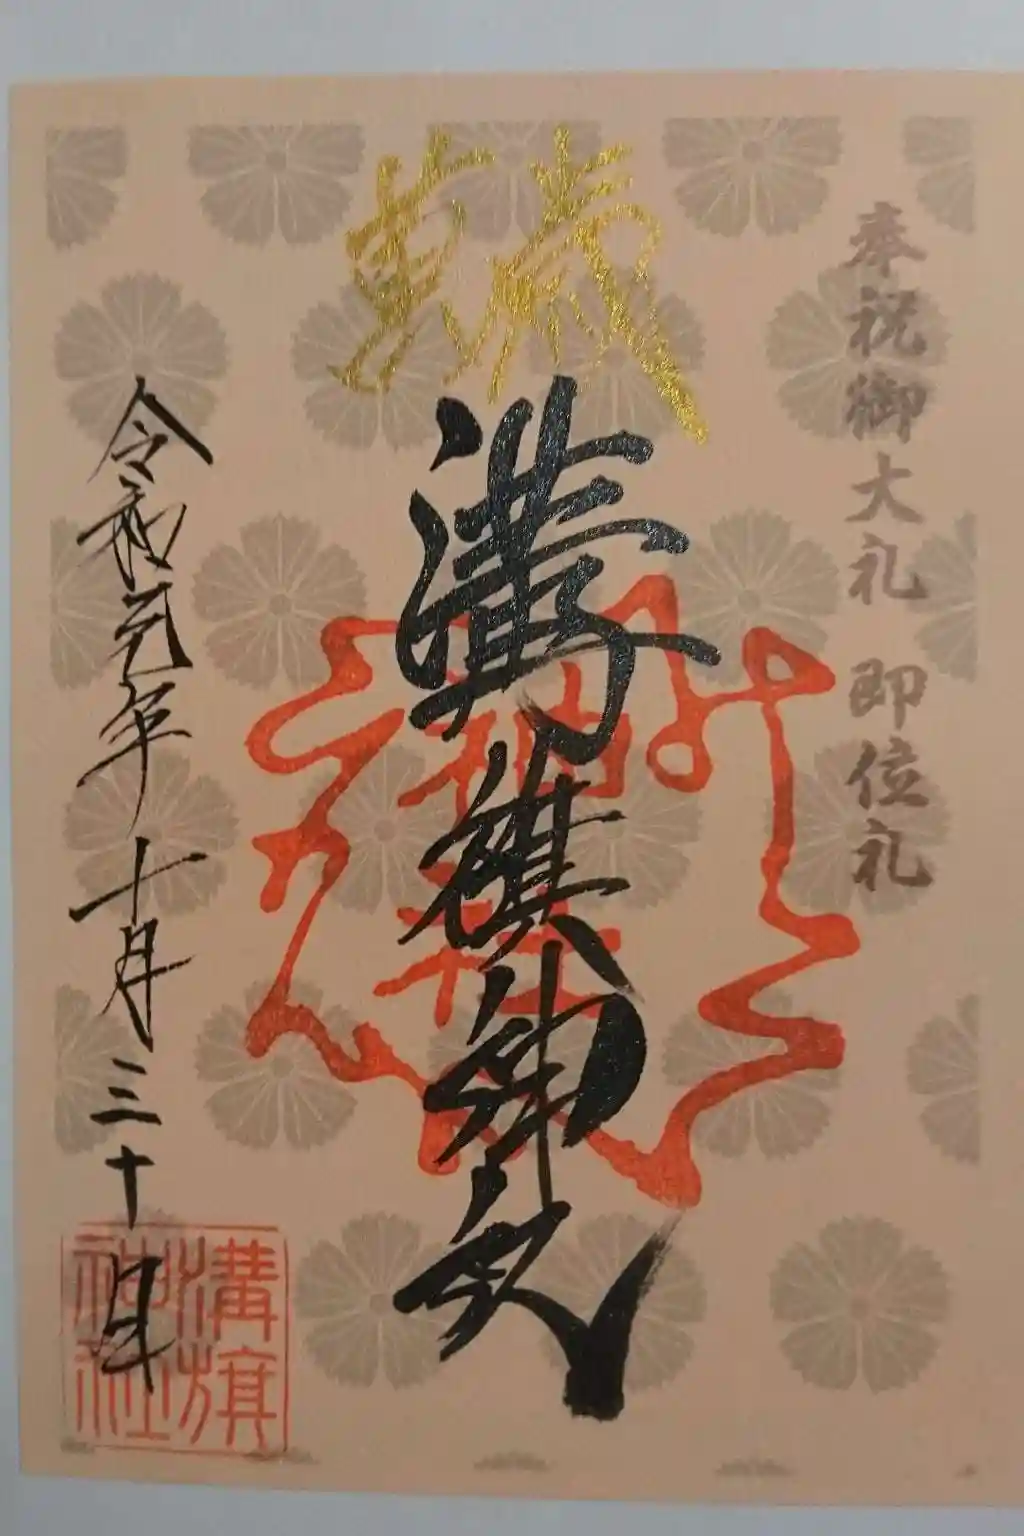 奉祝御大礼 即位礼
萬歳
溝旗神社
神社
令和元年十月三十日
溝旗
神社